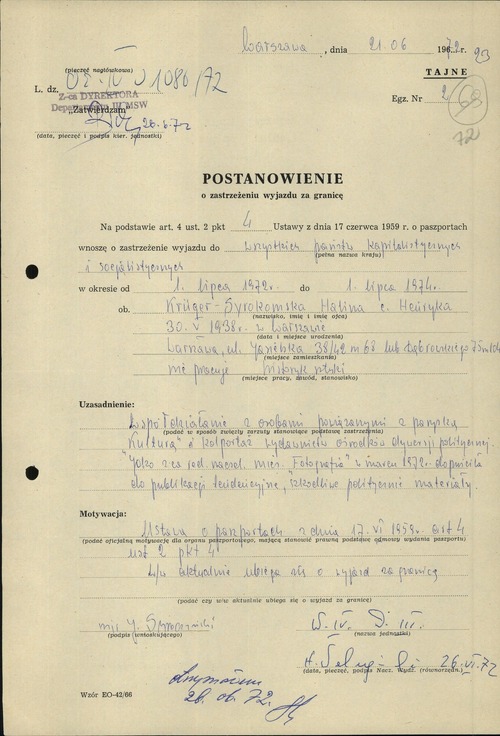 Warszawa, dnia 21.06 1972 r.
23
(pieczęć nagłówkowa)
TAJNE
L. dz. OE-IV-01080/72
Egz. Nr 2
68
72
Z-ca DYREKTORA
Departamentu III MSW
„Zatwierdzam"
26.6.72
(data, pieczęć i podpis kier. jednostki)
POSTANOWIENIE
o zastrzeżeniu wyjazdu za granicę
Na podstawie art. 4 ust. 2 pkt 4 Ustawy z dnia 17 czerwca 1959 r. o paszportach
wnoszę o zastrzeżenie wyjazdu do wszystkich państw kapitalistycznych
(pełna nazwa kraju)
i socjalistycznych
w okresie od 1. lipca 1972r. do 1 lipca 1974r.
ob. Krüger-Syrokomska Halina c. Henryka
(nazwisko, imię i imię ojca)
30.V 1938r. w Warszawie
(data i miejsce urodzenia)
Warszawa, ul. Jasieńka 38/42 m 68 lub Dąbrowskiego 75 m 104
(miejsce zamieszkania)
nie pracuje historyk sztuki
(miejsce pracy, zawód, stanowisko)
Uzasadnienie:
Współdziałanie z osobami powiązanymi z paryską
(podać w sposób zwięzły zarzuty stanowiące podstawę zastrzeżenia)
"Kulturą" i kolportaż wydawnictw ośrodków dywersji politycznej.
Jako z-ca red. naczel. mies. "Fotografia" w marcu 1972r. dopuściła
do publikacji tendencyjne, szkodliwe politycznie materiały.
Motywacja:
Ustawa o paszportach z dnia 17.VI 1959r. art 4
(podać oficjalną motywację dla organu paszportowego, mającą stanowić prawną podstawę odmowy wydania paszportu)
ust 2 pkt 4
W/w aktualnie ubiega się o wyjazd za granicę
(podać czy w/w aktualnie ubiega się o wyjazd za granicę)
mjr J.
(podpis wnioskującego)
W. IV. D. III.
(nazwa jednostki)
26.VI.72
(data, pieczęć, podpis Nacz. Wydz. (równorzędn.)
Otrzymałem
26.06.72.
Wzór EO-42/66